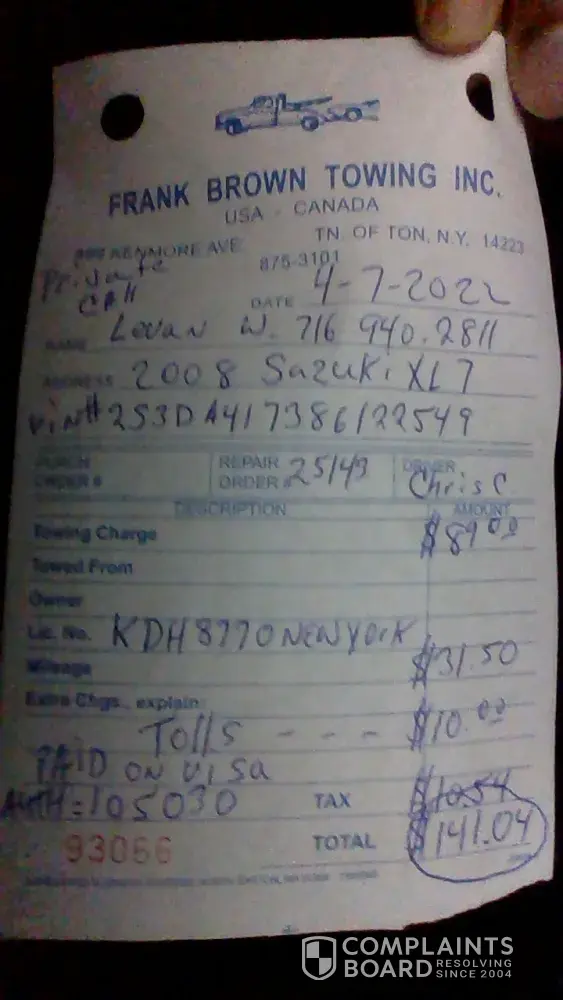 FRANK BROWN TOWING INC.
USA - CANADA
KENMORE AVE. TN. OF TON, N.Y. 14223
875-3101
Private
Call
DATE 4-7-2022
NAME Lovan W. 716 940.2811
ADDRESS 2008 Sazuki XL7
Vin# 2S3DA417386122549
PURCH ORDER # REPAIR ORDER # 25143 DRIVER Chris C
DESCRIPTION AMOUNT
Towing Charge $89.00
Towed From
Owner
Lic. No. KDH8770 NEW YORK
Mileage $31.50
Extra Chgs., explain:
Tolls - - - $10.00
PAID ON VISA
AUTH = 105030 TAX $10.54
93066 TOTAL $141.04
COMPLAINTS
BOARD RESOLVING
SINCE 2004